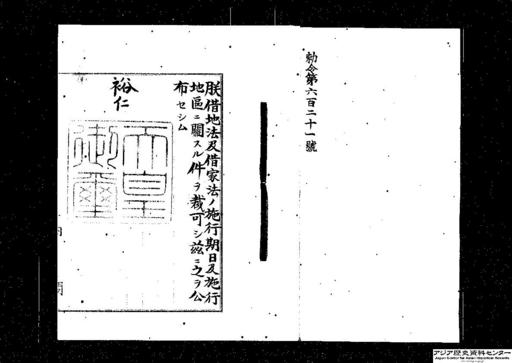 勅令第六百二十一號
朕借地法及借家法ノ施行期日及施行
地區ニ關スル件ヲ裁可シ玆ニ之ヲ公
布セシム
裕仁
天皇
御璽
アジア歴史資料センター
Japan Center for Asian Historical Records